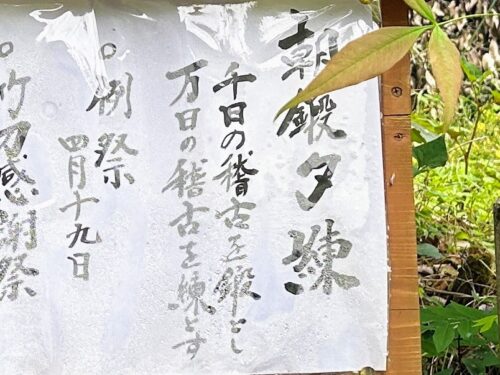 朝鍛夕練
千日の稽古を鍛とし
万日の稽古を練とす
○例祭
四月十九日
○竹刀感謝祭